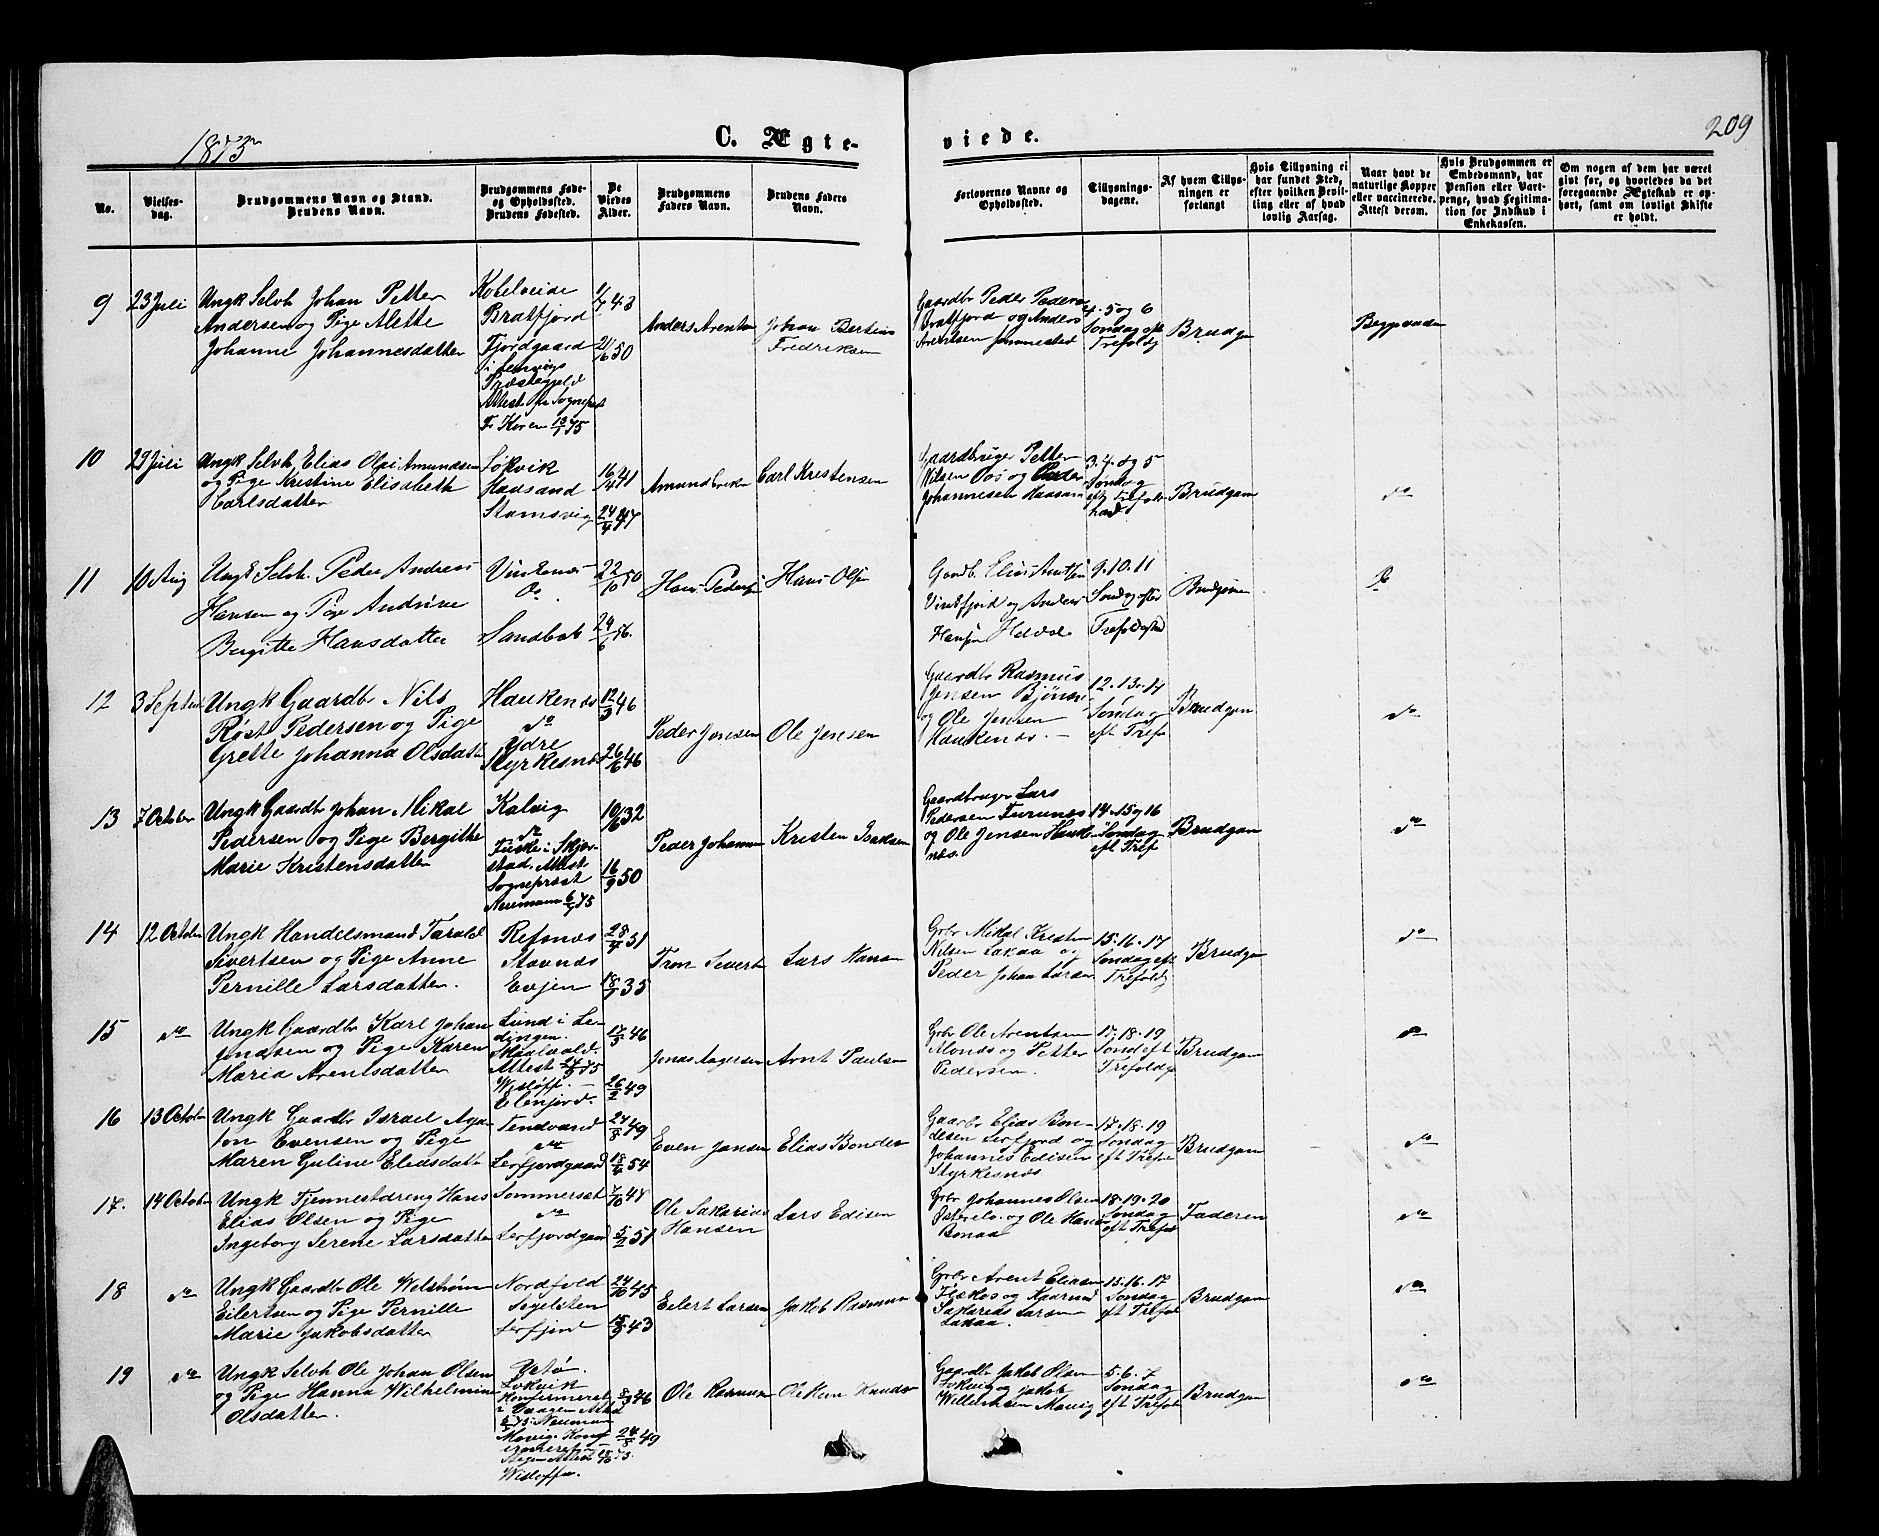 1873
C. Ægte-
viede.
209
No.
Vielses-
dag.
Brudgommens Navn og Stand.
Brudens Navn.
Brudgommens Føde-
og Opholdssted.
Brudens Fødested.
De
Viedes
Alder.
Brudgommens
Faders Navn.
Brudens Faders
Navn.
Forlovernes Navne og
Opholdssted.
Tillysnings-
dagene.
Af hvem Tillys-
ningen er
forlangt
Hvis Tillysning ei
har fundet Sted,
efter hvilken Bevil-
ling eller af hvad
lovlig Aarsag.
Naar havt de
naturlige Kopper
eller vaccinerede.
Attest derom.
Hvis Brudgommen er
Embedsmand, har
Pension eller Vart-
penge, hvad Legitima-
tion for Indskud i
Enkekassen.
Om nogen af dem har været
gift før, og hvorledes da det
foregaaende Ægteskab er op-
hørt, samt om lovligt Skifte
er holdt.
9
23 Juli
Ungk Selvh Johan Petter
Andersen og Pige Alette
Johanne Johannesdatter
Kobelveide
Bratfjord
Fjordgaard
i Lenvigs
Præstegjeld
Attest fra Sognepst
Fr Koren 13/7 75
1/7 43
21/6 50
Anders Arentsen
Johan Bertius
Fredriksen
Gaardbr Peder Peders
Bratfjord og Anders
Arentsen Jennestad
4. 5 og 6
Søndag eft
Trefoldg
Brudgn
Begge vacc
10
29 Juli
Ungk Selvh Elias Olai Amundsen
og Pige Kristine Elisabeth
Carlsdatter
Løkvik
Haasand
Stamsvig
16/4 41
24/4 47
Amund Eriksen
Carl Kristensen
Gaardbruger Petter
Nilsen Vos og Peder
Johannesen Haasan
3. 4. og 5
Søndag
eftr Trefold
hed
Brudgom
do
11
10 Aug
Ungk Selvh. Peder Andreas
Hansen og Pige Andrine
Bergitte Hansdatter
Vinkenes
Do
Sandbak
22/10 50
24/6 56.
Hans Peders
Hans Olsen
Gaardb. Elias Antsn
Vinkfjord og Anders
Hansen
9. 10. 11
Sondag efter
Trefoldighed
Brudgomen
do
12
3 Septem
Ungk Gaardbr Nils
Røst Pedersen og Pige
Grette Johanna Olsdatt
Haukenes
do
Ydre
Styrkesnes
12/3 46
26/6 46
Peder Jensen
Ole Jensen
Gaardbr Rasmus
Jensen Bjønsn
og Ole Jensen
Haukenes. –
12. 13. 14
Søndag
eft Tref
Brudgom
do
13
7 October
Ungk Gaardb Johan Mikal
Pedersen og Pige Bergitthe
Marie Kristensdatter
Kalvig
do
Fuske i Skjer-
stad. Attest
Sogneprest
Neumann 6/9 75
10/6 32
16/9 50
Peder Johannes
Kristen Isaksen
Gaardbruger Lars
Pedersen Furunes
og Ole Jensen Hauke
nes.
14. 15 og 16
Søndag
eft Tref
Brudgom
do
14
12 October
Ungk Handelsmand Tarald
Sivertsen og Pige Anne
Pernille Larsdatter.
Refsnes
Stavnes
Evjen
28/4 51
18/7 35
Tron Severt
Lars Hansn
Grbr Mikal Kristen
Nilsen Lakaa og
Peder Johan Larsen
15. 16. 17
Søndag eft
Trefoldg
Brudgom
do
15
do
Ungk Gaardbr Karl Johan
Jonasen og Pige Karen
Maria Arentsdatter
Lund i Le-
dingen.
Attest 24/9 75
Wisløff. –
Elenjord.
17/5 46
26/2 49
Jonas Aagesen
Arnt Paulsen
Grbr Ole Arentsen
Alonds og Petter
Pedersen.
17. 18. 19
Sønd eft
Trefoldg
Brudgom
do
16
13 October
Ungk Gaardbr Israel Aga-
ton Evensen og Pige
Maren Guline Eliasdatt
Tendvand
do
Lerfjordgaard
27/8 49
18/4 54
Even Jansen
Elias Bondes
Gaarbr Elias Bon-
desen Lerfjord og
Johannes Edisen
Styrkesnes
17. 18. 19
Søndag
eft Trefo
Brudgom
do
17.
14 October
Ungk Tjennestdreng Hans
Elias Olsen og Pige
Ingeborg Serene Larsdatter
Sommerset
do
Lerfjordgaard
7/10 47
5/2 51
Ole Sakarias
Hansen
Lars Edisen
Grbr Johannes Olsen
og Ole Hans
Bonaa
18. 19. 20
Søndag
eft Trefo
Faderen
do
18
do
Ungk Gaardbr Ole Welstrøm
Eilertsen og Pige Pernille
Marie Jakobsdatter
Nordfold
Segelsten
Lerfjord
24/10 45
15/9 43
Eilert Larsen
Jakob Rasmus
Grbr Arent Eliasen
Sakarias Larsen
Lakaa.
15. 16. 17
Søndag
eft Trefol
Brudgom
do
19
do
Ungk Selvh Ole Johan Olsen
og Pige Hanna Wilhelmine
Olsdatter.
Løkvik
Konfirmeret
i Vaagen Attest
75. Neuman
Movig. Konf
Wisløffn.
8/9 46
24/8 49
Ole Rasmus
Ole Knuds
Gaardbr Jakob Olsen
Løkvig og Jakob
Willelmsen Movig
5. 6. 7
Søndag
eft Trefol
Brudgom
do